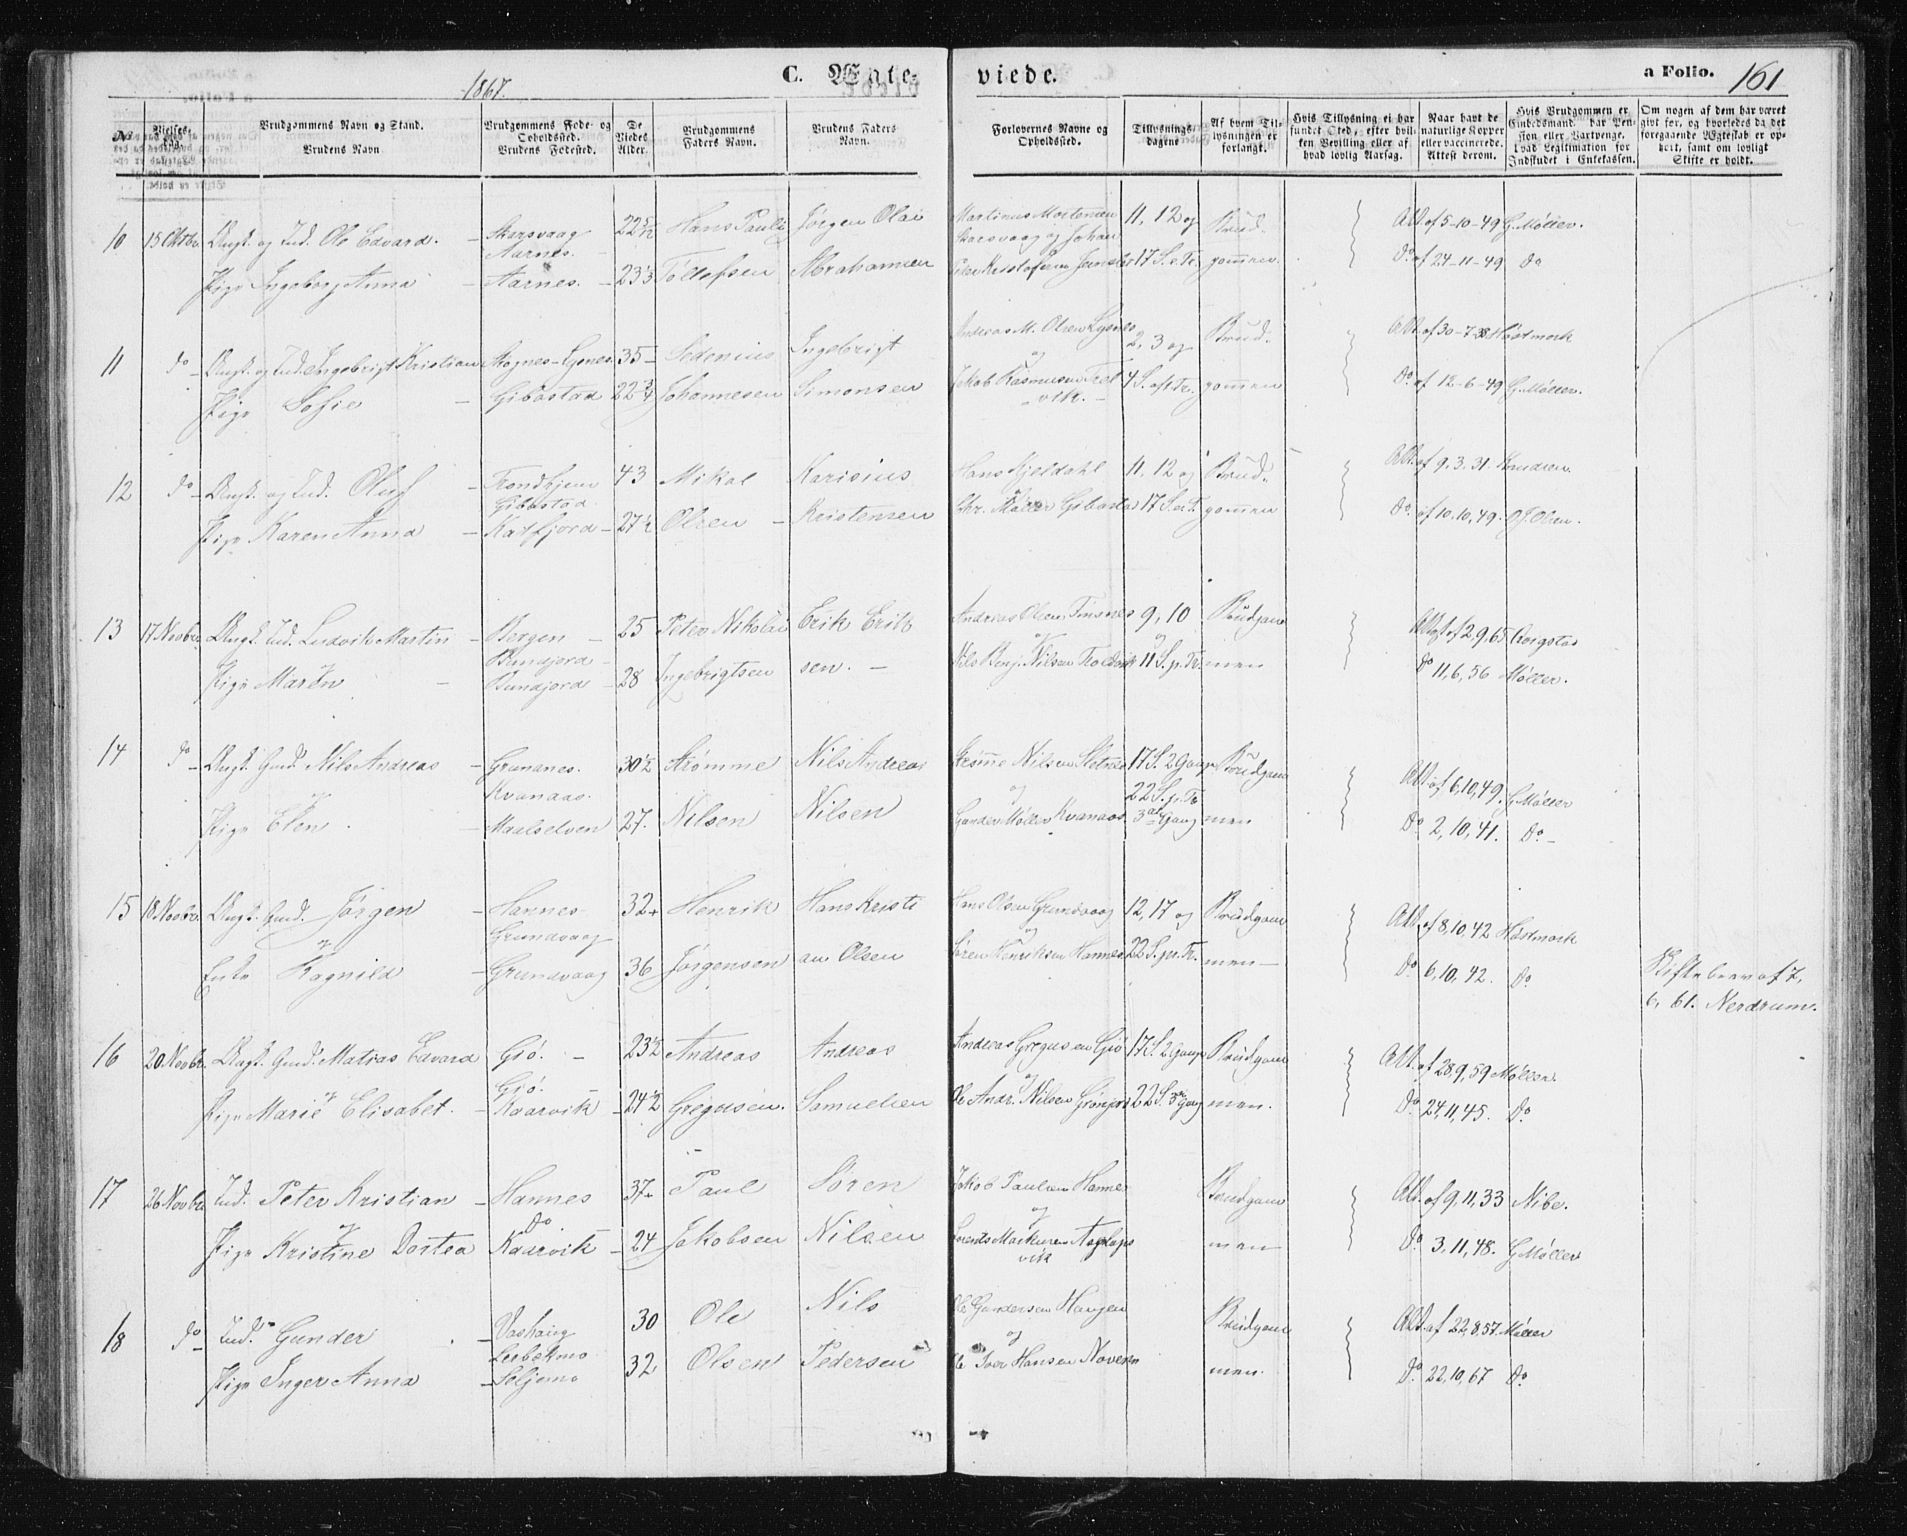 1867.
C. Ægte-
viede.
a Folio. 161
No
Vielses-Dag.
Brudgommens Navn og Stand.
Brudens Navn.
Brudgommens Føde- og Opholdssted.
Brudens Fødested.
De Viedes Alder.
Brudgommens Faders Navn.
Brudens Faders Navn.
Forlovernes Navne og Opholdssted.
Tillysnings-dagene
Af hvem Tillysningen er forlangt.
Hvis Tillysning ei har fundet Sted, efter hvilken Bevilling eller af hvad lovlig Aarsag.
Naar havt de naturlige Kopper eller vaccinerede. Attest derom.
Hvis Brudgommen er Embedsmand, har Pension eller Vartpenge, hvad Legitimation for Indskudet i Enkekassen.
Om nogen af dem har været givt før, og hvorledes da det foregaaende Ægteskab er ophørt, samt om lovligt Skifte er holdt.
10 15 Oktbr. Ungk. og Ind. Ole Edvard. - Skarsvaag 22 5/12 Hans Pauli Jørgen Olai Martinus Mortensen 11, 12 og Brud- Att. af 5-10-49 G. Møller.
Aarnes. Skarsvaag og Johan
Pige Ingeborg Anna - Aarnes. - 23 1/3 Tollefsen Abrahamsen 17 S. e. Tr. gommen. Do af 24-11-49 Do
11 Do - Ungk. og Ind. Ingebrigt Kristian 35 - Sedenius Ingebrigt Andreas M. Olsen Lysnes 2, 3 og Brud- Høstmork
og
Pige Sofie - Gibostad 22 3/4 Johannesen Simonsen Jakob Rasmussen 4 S. ef. Tr. gommen Do af 12-6-49 G. Møller.
vik. -
12 Do - Ungk. og Ind. Oluf - Trondhjem 43 Mikal Karisius Hans Kjeldahl 11, 12 og Brud- Att. af 9. 3. 31. Knudsen.
Gibostad. og
Pige Karen Anna - Kattfjord - 27 1/2 Olsen - Kristensen Chr. Møller Gibostad 17 S. e. T. gommen Do af 10. 10, 49. O J. Olsen.
13 17 Novbr. Ungk. Ind. Ludvik Martin - Bergen - 25 Peter Nikolai Erik Erik Andreas Olsen Finsnes 9, 10 Brudgom Att. af 2, 9, 65
Bundjord - og og
Pige Maren - Bundjord - 28 Ingebrigtsen sen. - Nils Benj. Nilsen 11 S. p. Tr. men Do 11, 6, 56 Møller.
14 Do - Ungk. Gmd. Nils Andreas - Grunanes. 30 1/2 Strømme Nils Andreas Nilsen 17 S. 2 Gange Brudgom Att. af 6, 10, 49. G. Møller
og Kvanaas. og 22 S. p. Tr.
Pige Elen. - Maalselven 27. Nilsen Nilsen Gunder Møller Kvanaas 3die Gang men Do 2, 10, 41. Do -
15 18 Novbr. Ungk. Gmd. Jørgen - Hannes 32 + Henrik Hans Kristi Hans Olsen Grundvaag 12, 17 og Brudgom Att. af 8, 10, 42 Høstmork
og Grundvaag og
Enke Ragnild - Grundvaag 36 Jørgensen an Olsen Søren Henriksen Hannes 22 S. p. Tr. men - Do 6, 10, 42. Do Skiftebevis af 7,
6, 61. Nerdrum.
16 20 Novbr. Ungk. Gmd. Matias Edvard Gjø. - 23 1/2 Andreas Andreas Andreas Gregusen Gjø 17 S. 2 Gange Brudgom Att. af 28, 9, 59 Møller.
og Gjø. og
Pige Marie Elisabet. - Kaarvik - 24 1/2 Gregusen. Samuelsen Ole Andr. Nilsen Grønjord 22 S. 3die Gang men. Do 24, 11, 45. Do
17 26 Novbr. Ind. Peter Kristian - Hannes 37 - Paul Søren Jakob Paulsen Hannes Brudgom Att. af 9, 11, 33 Nibe.
og Do og
Pige Kristine Dortea Kaarvik - 24 Jakobsen Nilsen Markusen men Do 3, 11, 48. G Møller
vik
18 Do - Ind. Gunder - Vashaug 30 Ole Nils Ole Gundersen Haugen Brudgom Att. af 22, 8, 57. Møller
Leebekmo og
Pige Inger Anna - Seljemo 32 Olsen Pedersen Ole Iver Hansen men. Do 22, 10, 67 Do